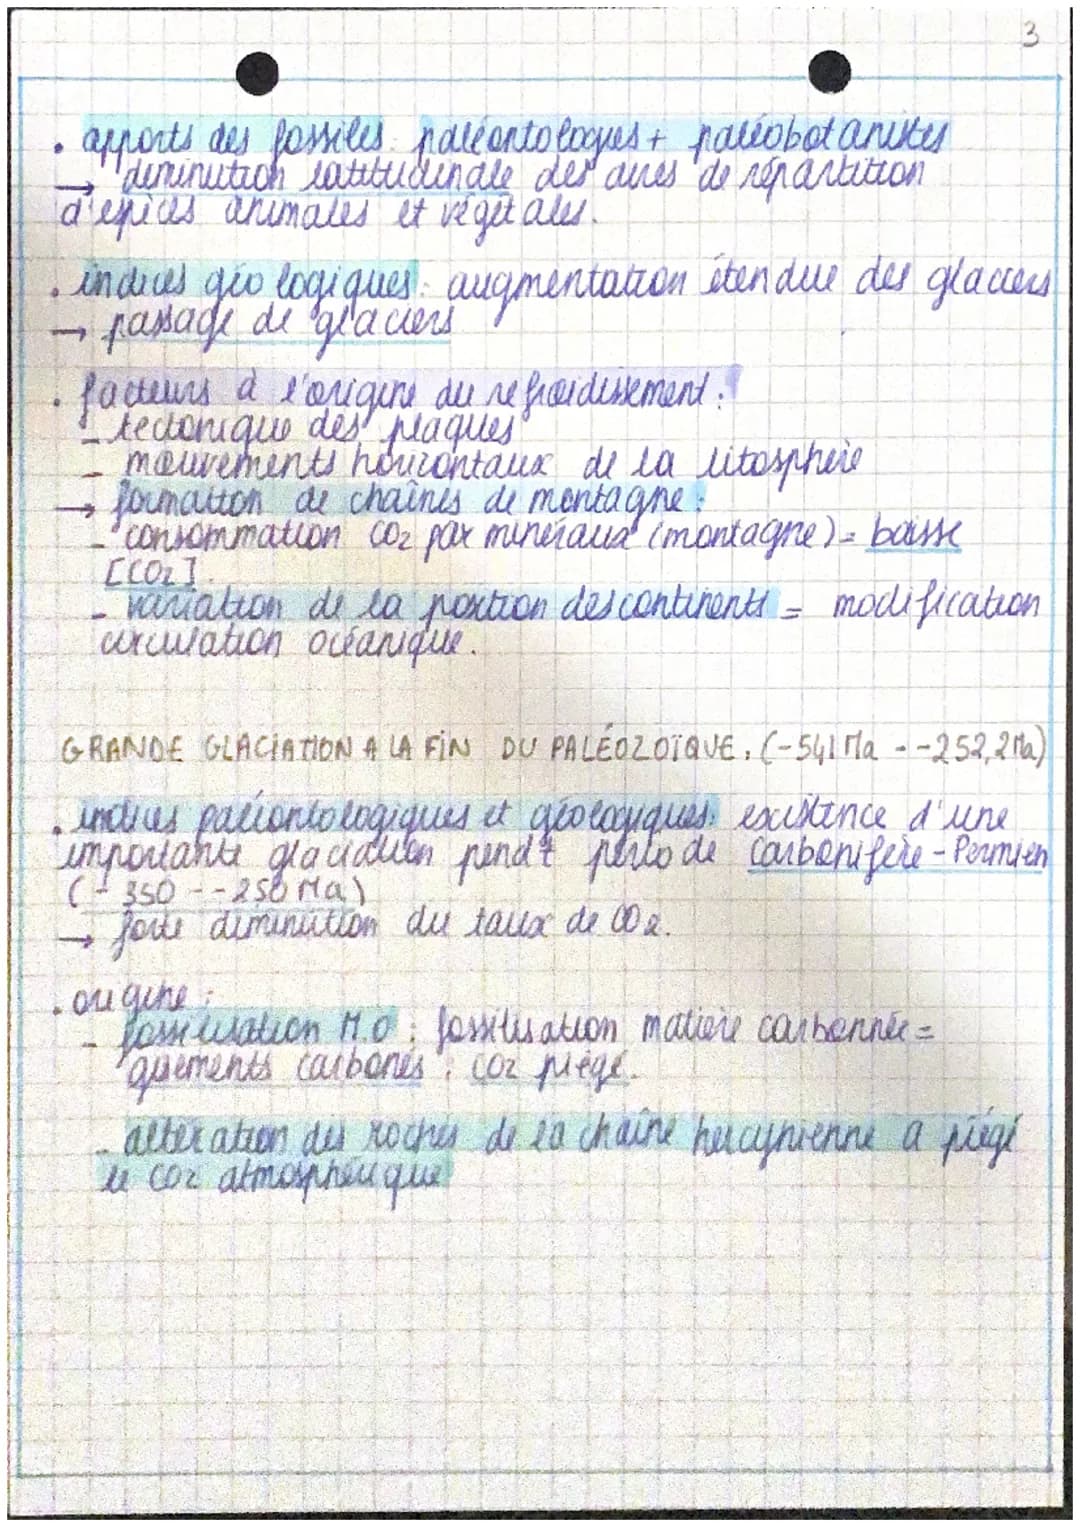 3
. apports des fossiles : paléontologues + paléobotanistes
→ diminution latitudinale des aires de répartition
d'epices animales et végétales.
. indices géologiques : augmentation étendue des glaciers
→ passage de glaciers
. facteurs à l'origine du refroidissement :
- tectonique des plaques
- mouvements horizontaux de la litosphère
→ formation de chaînes de montagne :
- consommation CO2 par minéraux (montagne) = baisse
[CO2].
- variation de la position des continents = modification
circulation océanique.
GRANDE GLACIATION A LA FIN DU PALÉOZOÏQUE, (-541 Ma - -252,2 Ma)
. indices paléontologiques et géologiques : existence d'une
importante glaciation pendt période Carbonifère - Permien
(- 350 - - 250 Ma)
→ forte diminution du taux de CO2.
. origine :
- fossilisation M.O : fossilisation matière carbonnée =
gisements carbonés : CO2 piégé.
- altération des roches de la chaîne hercynienne a piégé
le CO2 atmosphérique